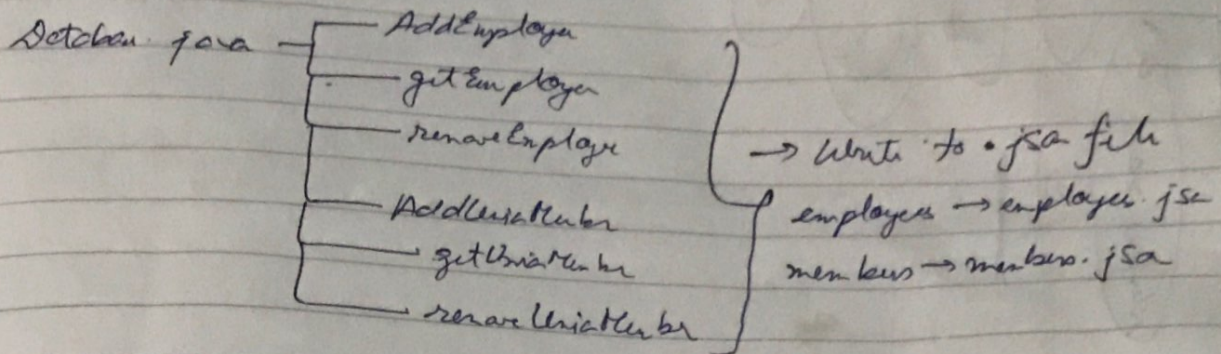 Database.java
AddEmployee
getEmployee
removeEmployee
AddUnionMember
getUnionMember
removeUnionMember
→ Write to .json file
employees → employees.json
members → members.json